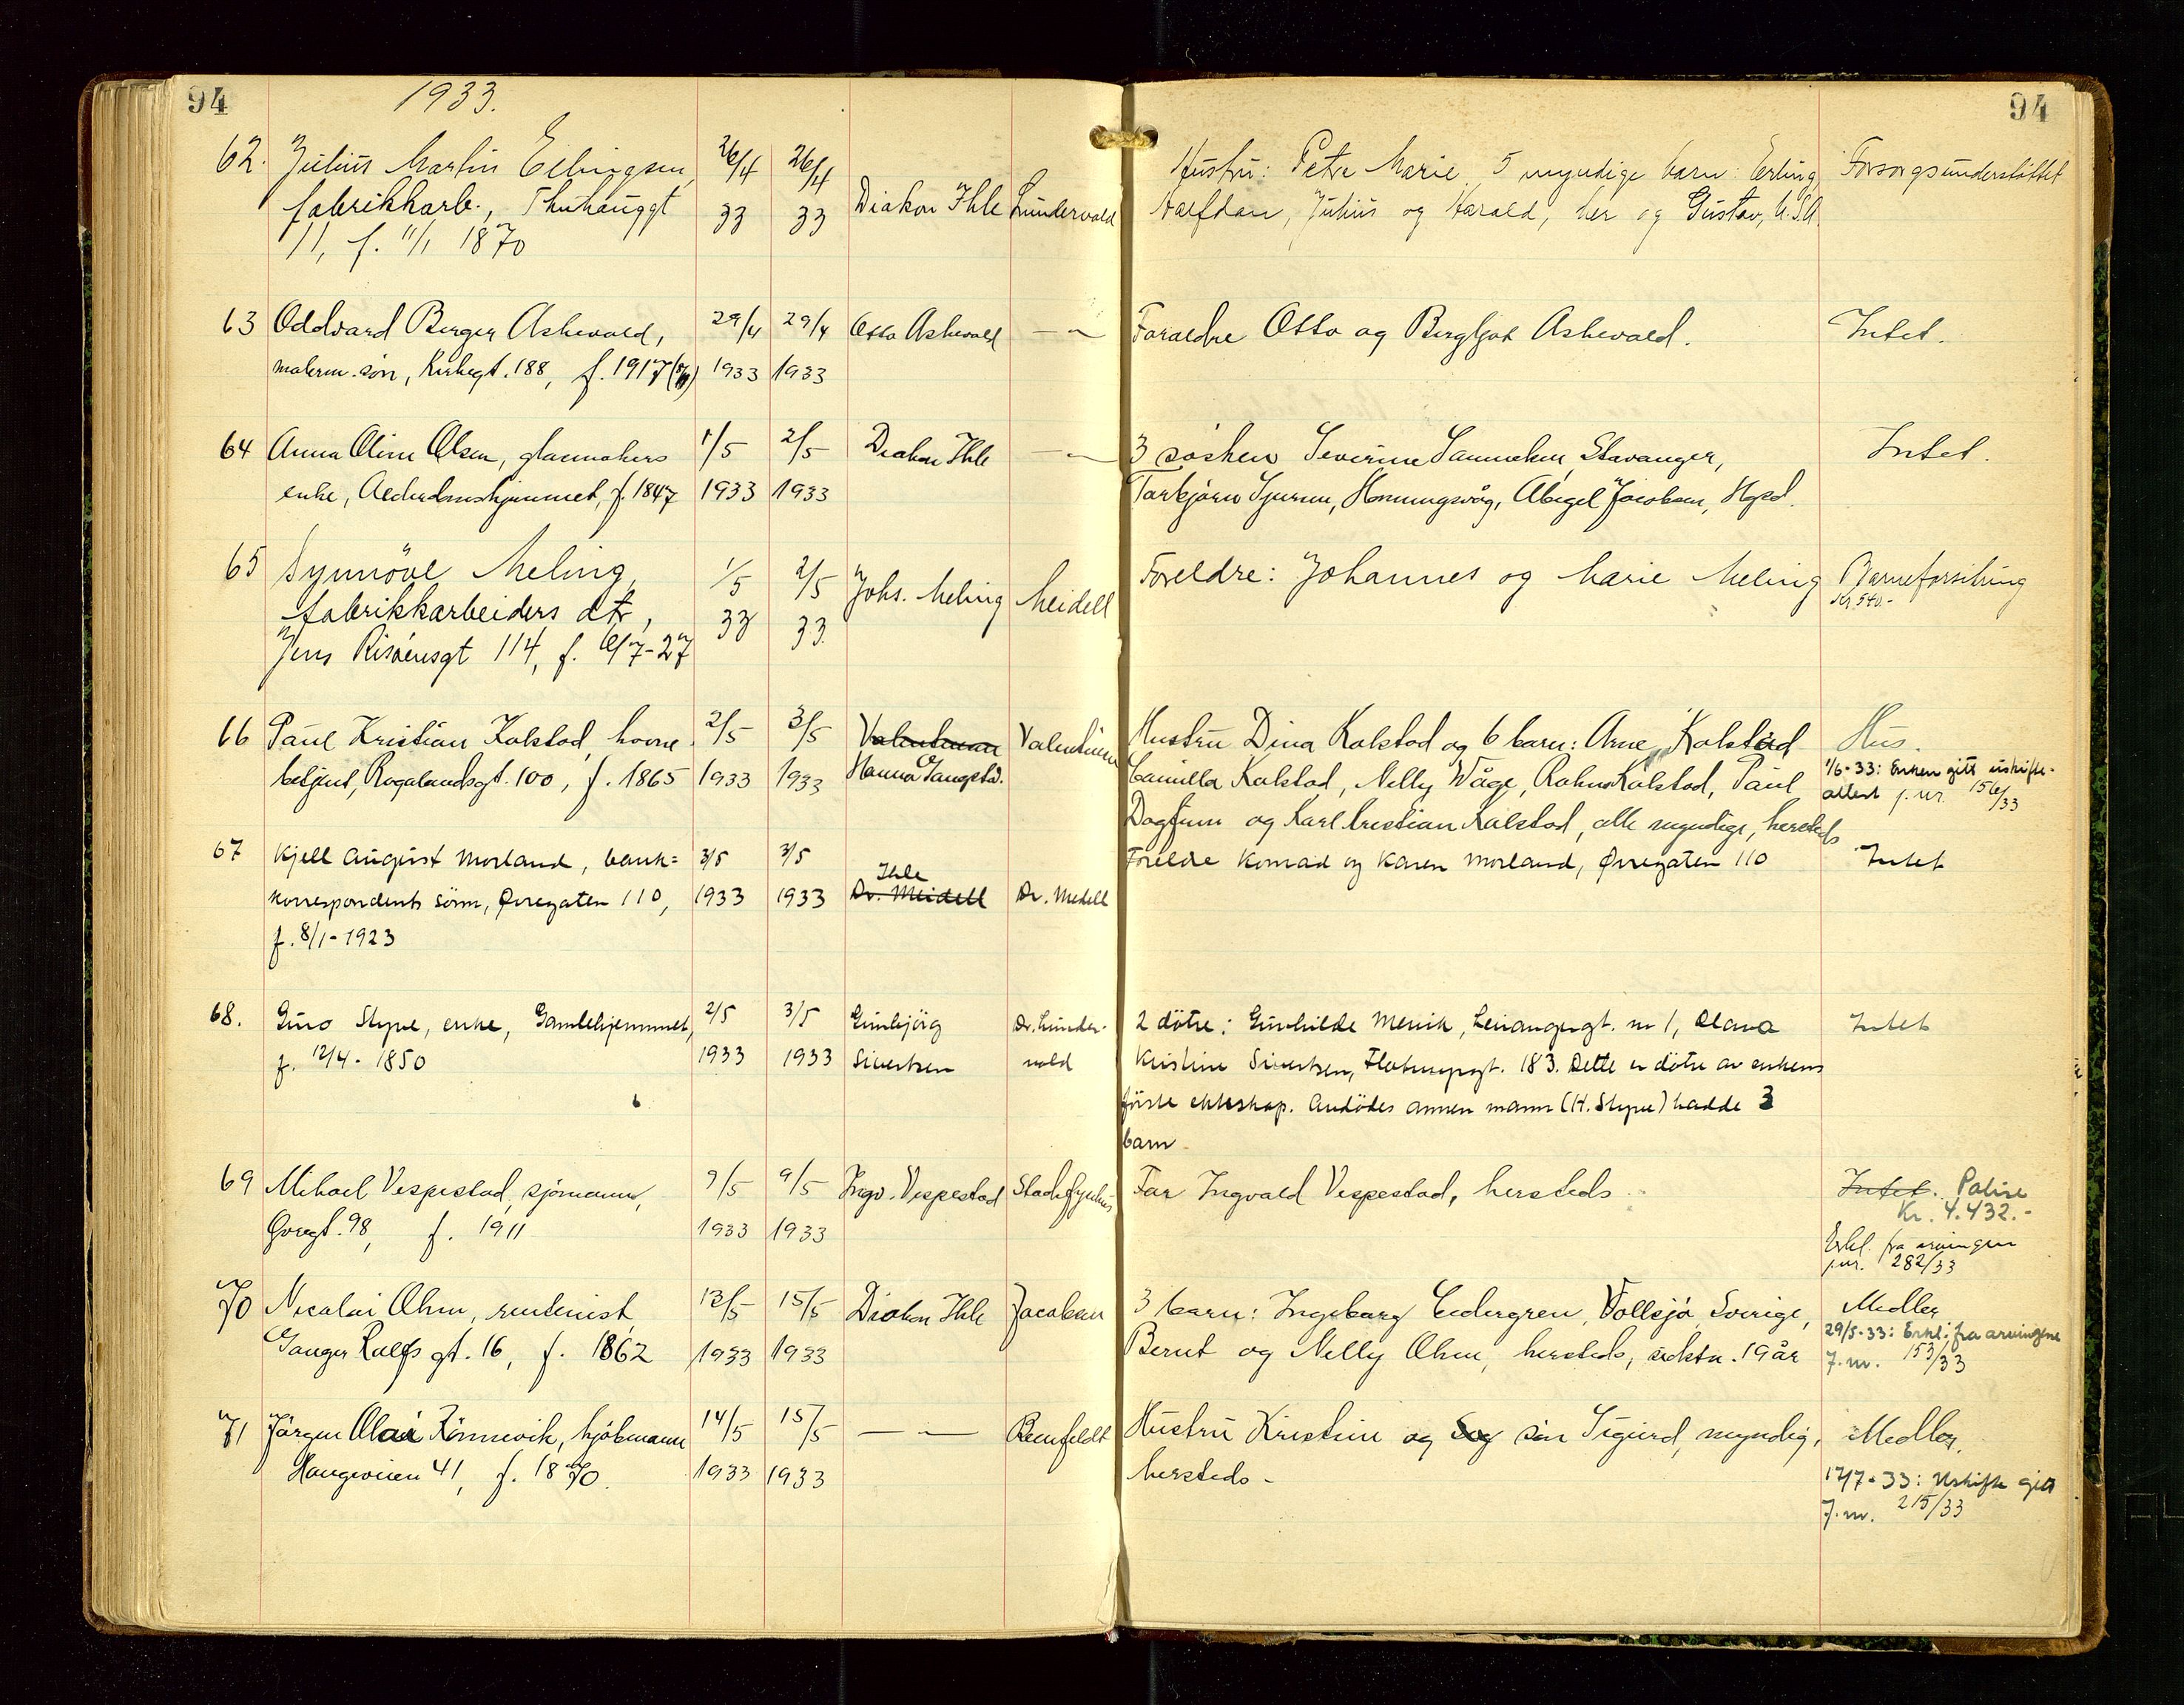 94
1933.
94
62. Julius Martin Ellingsen, 26/4 26/4 Hustru: Petre Marie 5 myndige barn: Erling Forsorgsunderstøttet
fabrikkarb., 33 33 Diakon Ihle Lundervold Halfdan, Julius og Harald, her og Gustav, U.S.A.
11, f. 11/1 1870
63 Oddvard Berger Askevold, 29/4 29/4 Otto Askevold — " — Foraeldre Otto og Bergljot Askevold. Intet.
malerm. søn, Kirkegt. 188, f. 1917 1933 1933
64 Anna Oline Olsen, glasmakers 1/5 2/5 Diakon Ihle — " — 3 søsken Severine Stavanger, Intet.
enke, f. 1847 1933 1933 Torbjørn Honningsvåg, Abigel Jacobsen, Hgsd.
65 Synnöve Meling, 1/5 2/5 Johs. Meling Meidell Foreldre: Johannes og Marie Meling Barneforsikring
fabrikkarbeiders dtr, 33 33. Kr. 540.-
Jens Risøensgt 114, f. 6/7-27
66 Paul Kristian Kolstad, havne 2/5 3/5 Valentinsen Valentinsen Hustru Dina Kolstad og 6 barn: Arne Kolstad Hus.
betjent, Rogalandsgt. 100, f. 1865 1933 1933 Hanna Camilla Kolstad, Nelly Våge, Kolstad, Paul 1/6-33: Enken gitt uskifte-
attest j. nr. 156/33
Dagfinn og Karl Kristian Kolstad, alle myndige, hersteds
67 Kjell August Morland, bank= 3/5 3/5 Ihle Foreldre Konrad og Karen Morland, Øvregaten 110 Intet
korrespondents sönn, Øvregaten 110, 1933 1933 Dr. Meidell Dr. Medell
f. 8/1-1923
68. Guro Stype, enke, Gamlehjemmet, 2/5 3/5 Gunbjörg Dr. Lunder- 2 dötre: Gunhilde Menik, gt. nr 1, Olava Intet
f. 12/4-1850 1933 1933 Sivertsen vold Kristine Sivertsen, gt. 183. Dette er dötre av enkens
förste ekteskap. Avdödes annen mann (H. Stype) hadde 3
barn
69 Mikael Vespestad, sjømann, 9/5 9/5 Ingv. Vespestad Stadsfysikus Far Ingvald Vespestad, hersteds Intet. Polise
Kr. 4.432.-
Øvregt. 98, f. 1911 1933 1933 Erkl. fra arvingen
jnr. 282/33
70 Nicolai Ohm, rentenist, 13/5 15/5 Diakon Ihle Jacobsen 3 barn: Ingeborg Cedergren, Vollsjø, Sverige, Midler
29/5-33: Erkl. fra arvingene
Ganger Rolfs gt. 16, f. 1862 1933 1933 Bernt og Nelly Ohm, hersteds, sidstn. 19 år J. nr. 153/33
71 Jørgen Olai Rönnevik, kjøbmann 14/5 15/5 — " — Reinfeldt Hustru Kristine og søn Sigurd, myndig, Midler.
Haugeveien 41, f. 1870. 1933 1933 hersteds - 17/7-33: Uskifte gitt
J. nr. 215/33